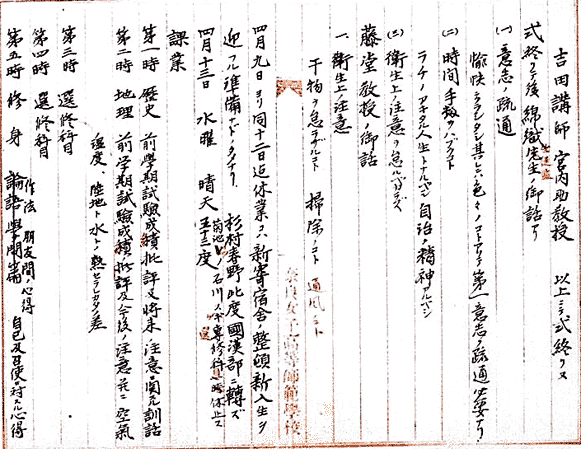 吉田講師 宮内助教授 以上ニテ式終リヌ
式終リテ後 綿織先生ノ御話アリ
(一) 意志ノ疏通
愉快 其 色々ノコトアリテ第一意志ノ疏通必要ナリ
(二) 時間ノ手拔ヲハブクコト
ラチノアキタル人生トナルベシ 自治ノ精神アルベシ
(三) 衛生上ノ注意ヲ怠ルベカラズ
藤堂教授ノ御話
一、衛生上ノ注意
干物ヲ急ラザルコト 掃除ノコト 通風ノコト
四月九日ヨリ同十二日迄休業コハ新寄宿舎ノ整頓新入生ヲ
迎フ準備ナドノタメナリ 杉村春野此度國漢部ニ轉ズ
四月十三日 水曜 晴天 五十三度 菊池 石川 専修科 一時休止ス
課業
第一時 歴史 前學期試驗成績批評及將来ノ注意ニ関スル訓話
第二時 地理 前学期試驗成績批評及今後ノ注意並ニ空氣
温度、陸地ト水トノ熱 差
第三時 選修科目
第四時 選修科目
第五時 修身 作法 朋友間ノ心得
論語學而篇 自己及召使ニ対スル心得
奈良女子高等師範學校